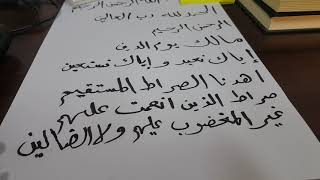 الله الرحمن الرحيم
الحمد لله رب العالمين
الرحمن الرحيم
مالك يوم الدين
إياك نعبد و إياك نستعين
اهدنا الصراط المستقيم
صراط الذين انعمت عليهم
غير المغضوب عليهم ولا الضالين